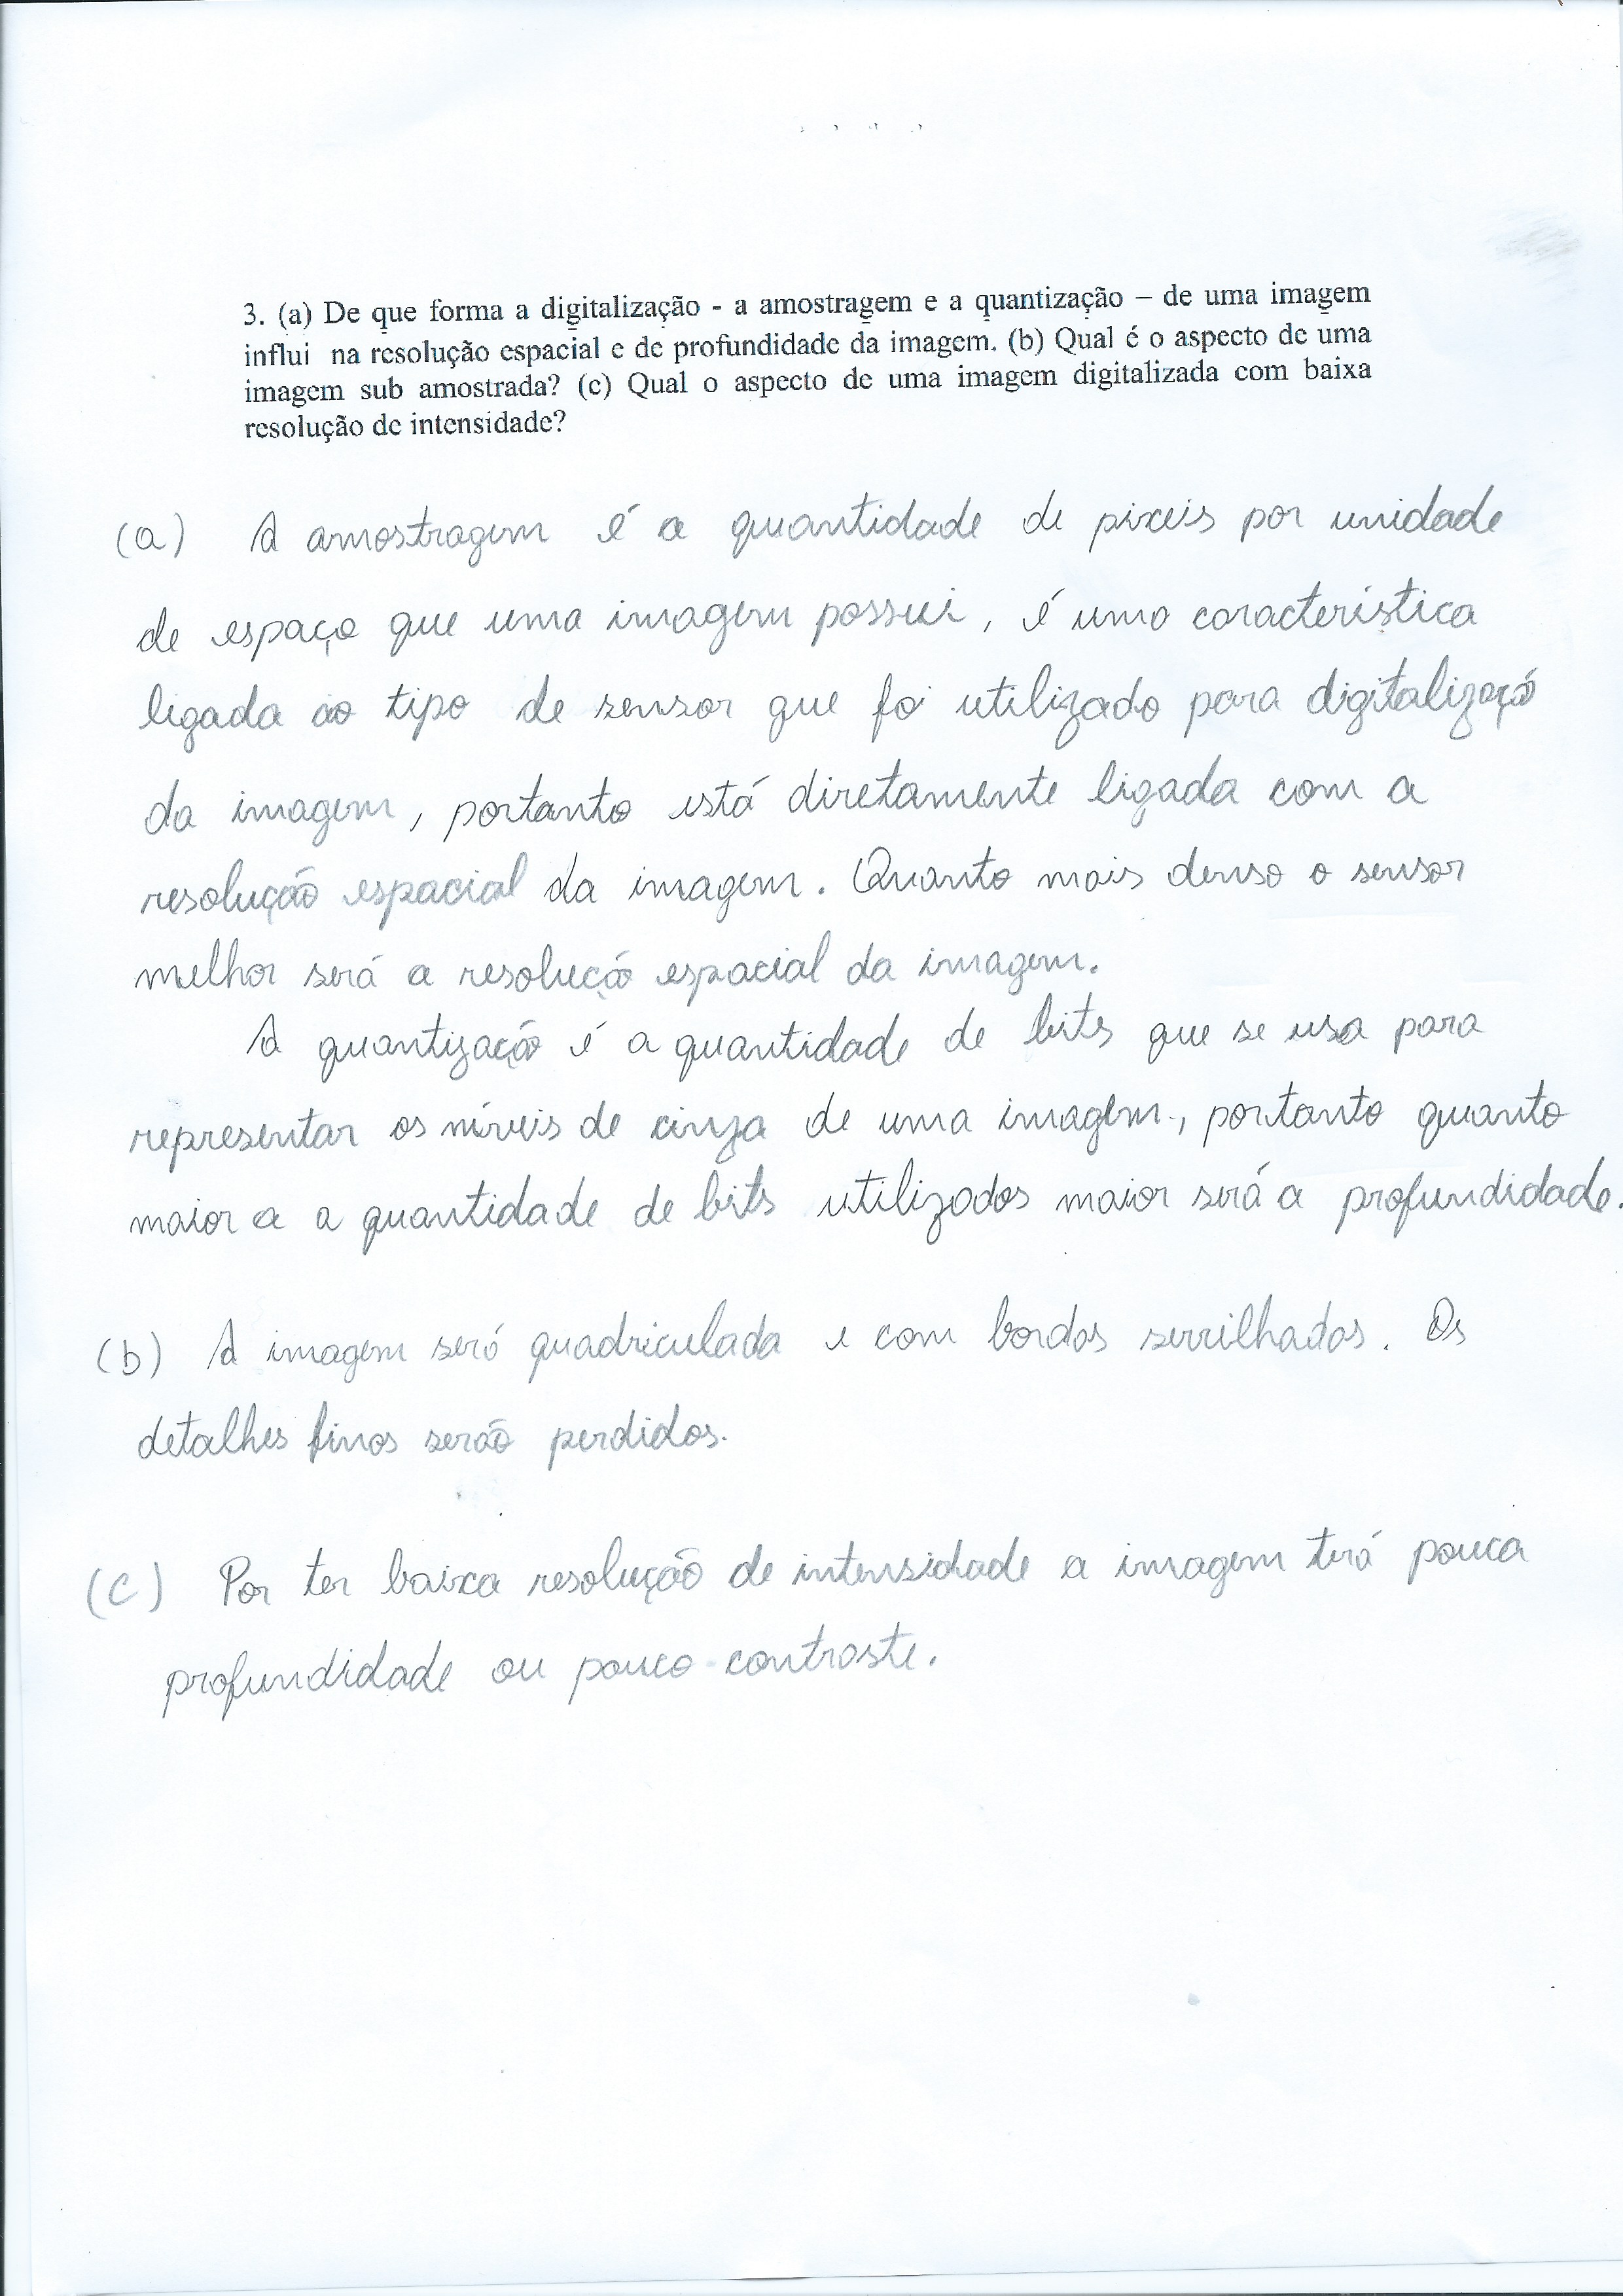 3. (a) De que forma a digitalização - a amostragem e a quantização – de uma imagem
influi na resolução espacial e de profundidade da imagem. (b) Qual é o aspecto de uma
imagem sub amostrada? (c) Qual o aspecto de uma imagem digitalizada com baixa
resolução de intensidade?
(a) A amostragem é a quantidade de pixeis por unidade
de espaço que uma imagem possui, é uma característica
ligada ao tipo de sensor que foi utilizado para digitalizaçã
da imagem, portanto está diretamente ligada com a
resolução espacial da imagem. Quanto mais denso o sensor
melhor será a resoluçã espacial da imagem.
A quantização é a quantidade de bits que se usa para
representar os níveis de cinza de uma imagem, portanto quanto
maior a a quantidade de bits utilizados maior será a profundidade.
(b) A imagem será quadriculada e com bordas serrilhadas. Os
detalhes finos serão perdidos.
(c) Por ter baixa resolução de intensidade a imagem terá pouca
profundidade ou pouco contraste.